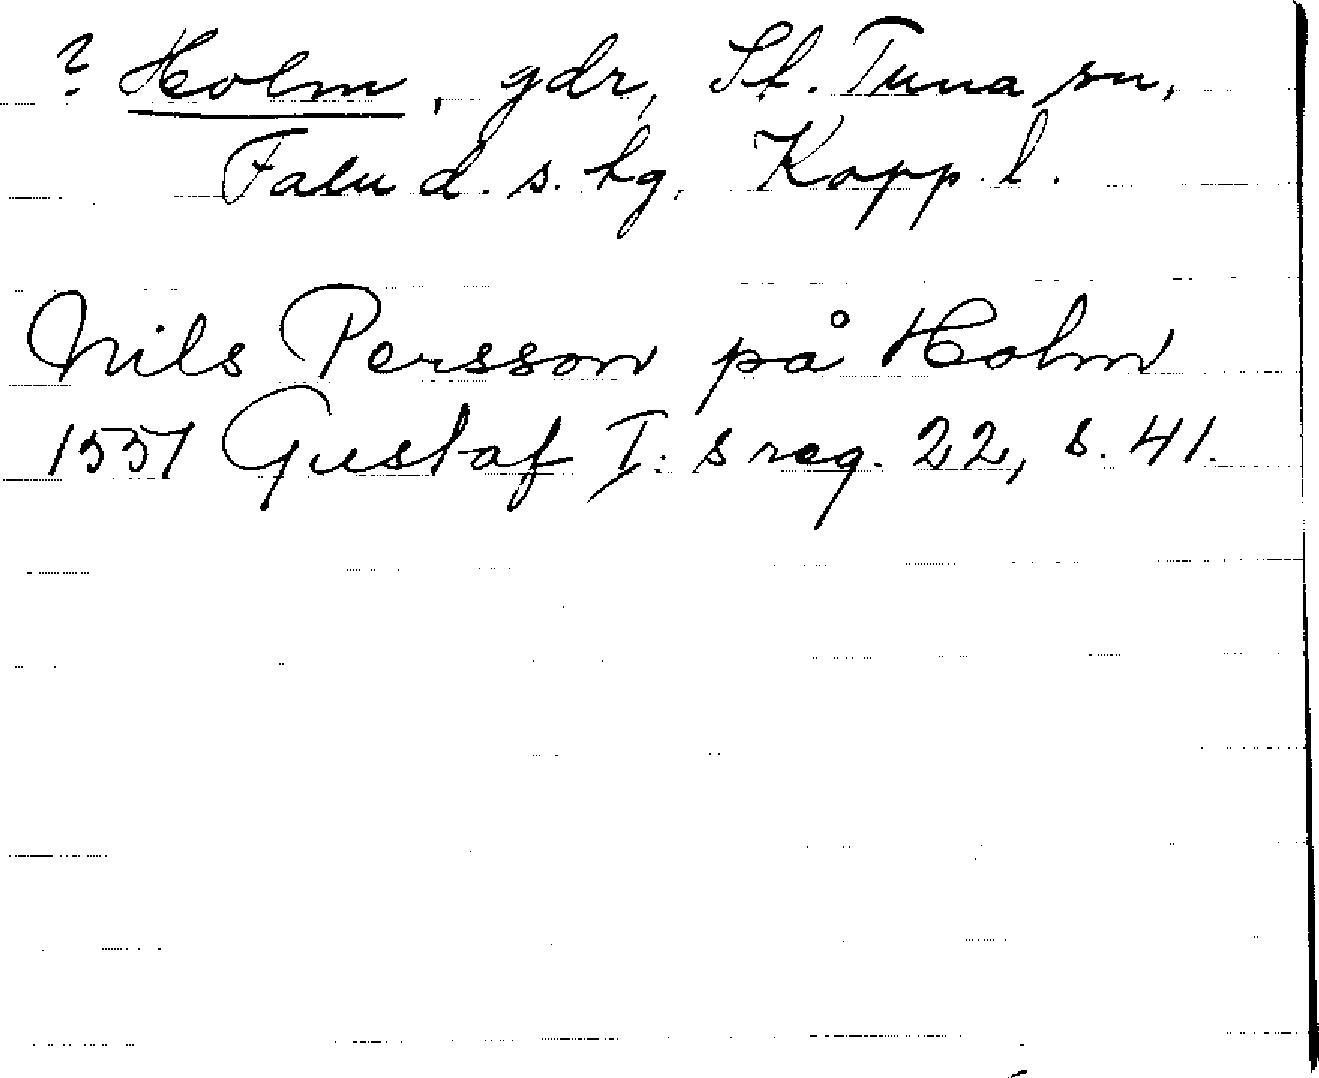 ? Holm, gdr, St. Tuna sn,
Falu d. s. hg. Kopp. l.
Nils Persson på Holm
1551 Gustaf I:s reg. 22, s. 41.